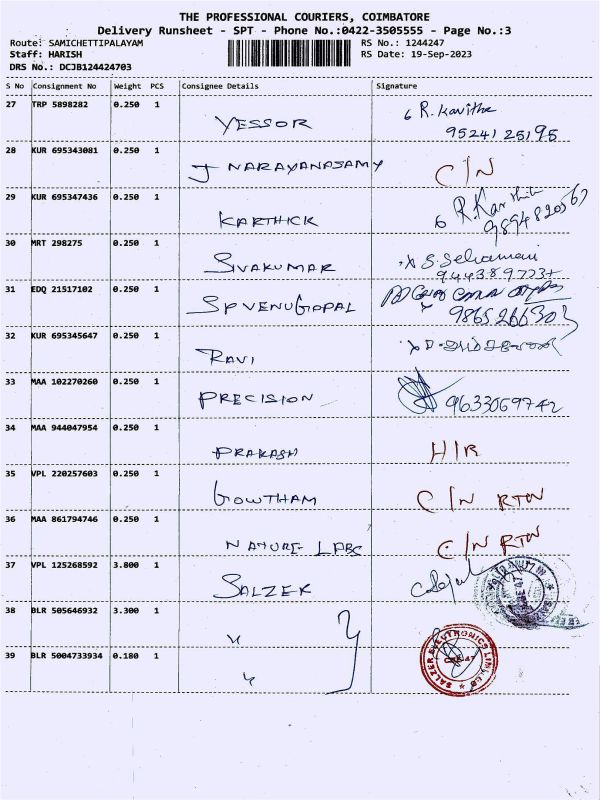 THE PROFESSIONAL COURIERS, COIMBATORE
Delivery Runsheet - SPT - Phone No.:0422-3505555 - Page No.:3
Route: SAMICHETTIPALAYAM RS No.: 1244247
Staff: HARISH RS Date: 19-Sep-2023
DRS No.: DCJB124424703
S No Consignment No Weight PCS Consignee Details Signature
27 TRP 5898282 0.250 1 YESSOR R. Kavitha
95241 25195
28 KUR 695343081 0.250 1 J NARAYANASAMY C/N
29 KUR 695347436 0.250 1 KARTHICK R.Karthik
9894820567
30 MRT 298275 0.250 1 SIVAKUMAR S. Selvamani
31 EDQ 21517102 0.250 1 SP VENUGOPAL
32 KUR 695345647 0.250 1 RAVI
33 MAA 102270260 0.250 1 PRECISION 9633069742
34 MAA 944047954 0.250 1 PRAKASH H/R
35 VPL 220257603 0.250 1 GOWTHAM C/N RTN
36 MAA 861794746 0.250 1 NATURE LABS C/N RTN
37 VPL 125268592 3.800 1 SALZER
38 BLR 505646932 3.300 1 "
39 BLR 5004733934 0.180 1 "
SALZER ELECTRONICS LIMITED
CBE-47